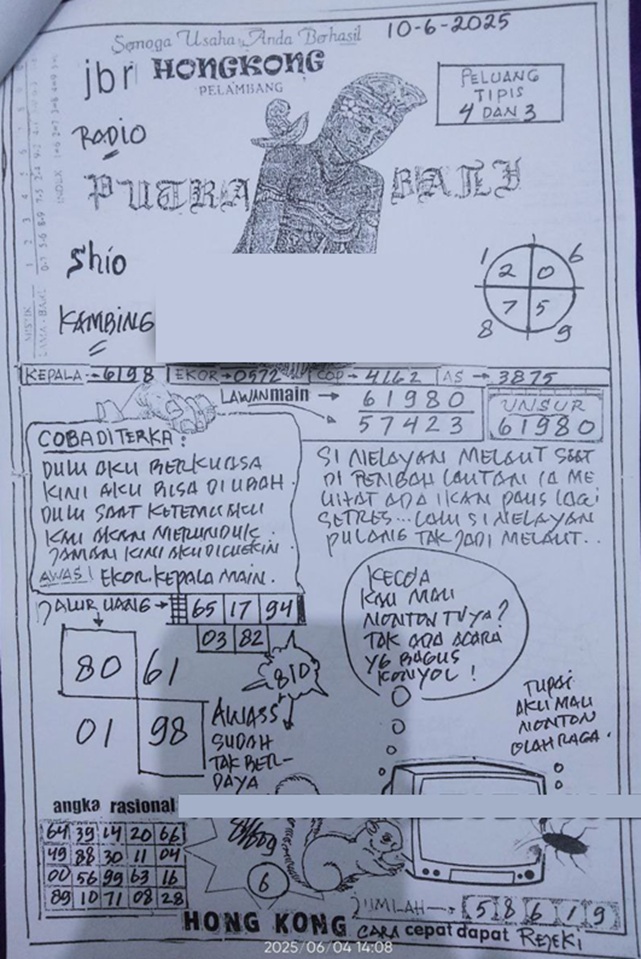 Semoga Usaha Anda Berhasil
10-6-2025
jbr HONGKONG
PELAMBANG
PELUANG
TIPIS
4 DAN 3
RADIO
PUTRA BALI
Shio
KAMBING
1 6
2 0
7 5
8 9
KEPALA → 6198 EKOR → 0572 COP → 4162 AS → 3875
LAWAN main → 61980
57423
UNSUR
61980
COBA DITERKA :
DULU AKU BERKUASA
KINI AKU BISA DIUBAH.
DULU SAAT KETEMU AKU
KAU AKAN MERUNDUK.
ZAMAN KINI AKU DICUEKIN.
AWAS! EKOR. KEPALA MAIN.
SI NELAYAN MELAUT SAAT
DI TENGAH LAUTAN IA ME
LIHAT ADA IKAN PAUS LAGI
SETRES... LALU SI NELAYAN
PULANG TAK JADI MELAUT..
JALUR UANG → 65 17 94
03 82
80 61
01 98
810
AWASS
SUDAH
TAK BER-
DAYA
KECOA
KAU MAU
NONTON TV YA?
TAK ADA ACARA
YG BAGUS
KONYOL!
TUPAI
AKU MAU
NONTON
OLAHRAGA.
angka rasional
64 39 14 20 66
49 88 30 11 04
00 56 99 63 16
89 10 71 08 28
6
JUMLAH → 5 8 6 1 9
HONG KONG CARA cepat dapat REJEKI
2025/06/04 14:08